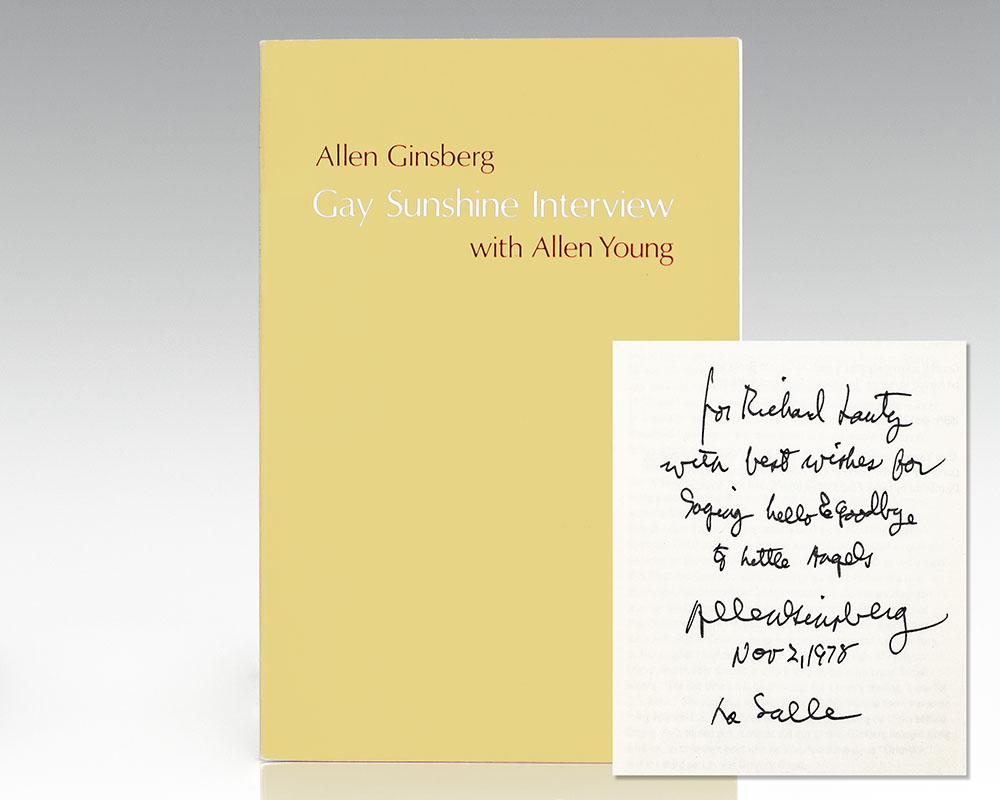 Allen Ginsberg
Gay Sunshine Interview
with Allen Young
for Richard Lautz
with best wishes for
Saying hello & Goodbye
to Little Angels
Allen Ginsberg
Nov 2, 1978
La Salle